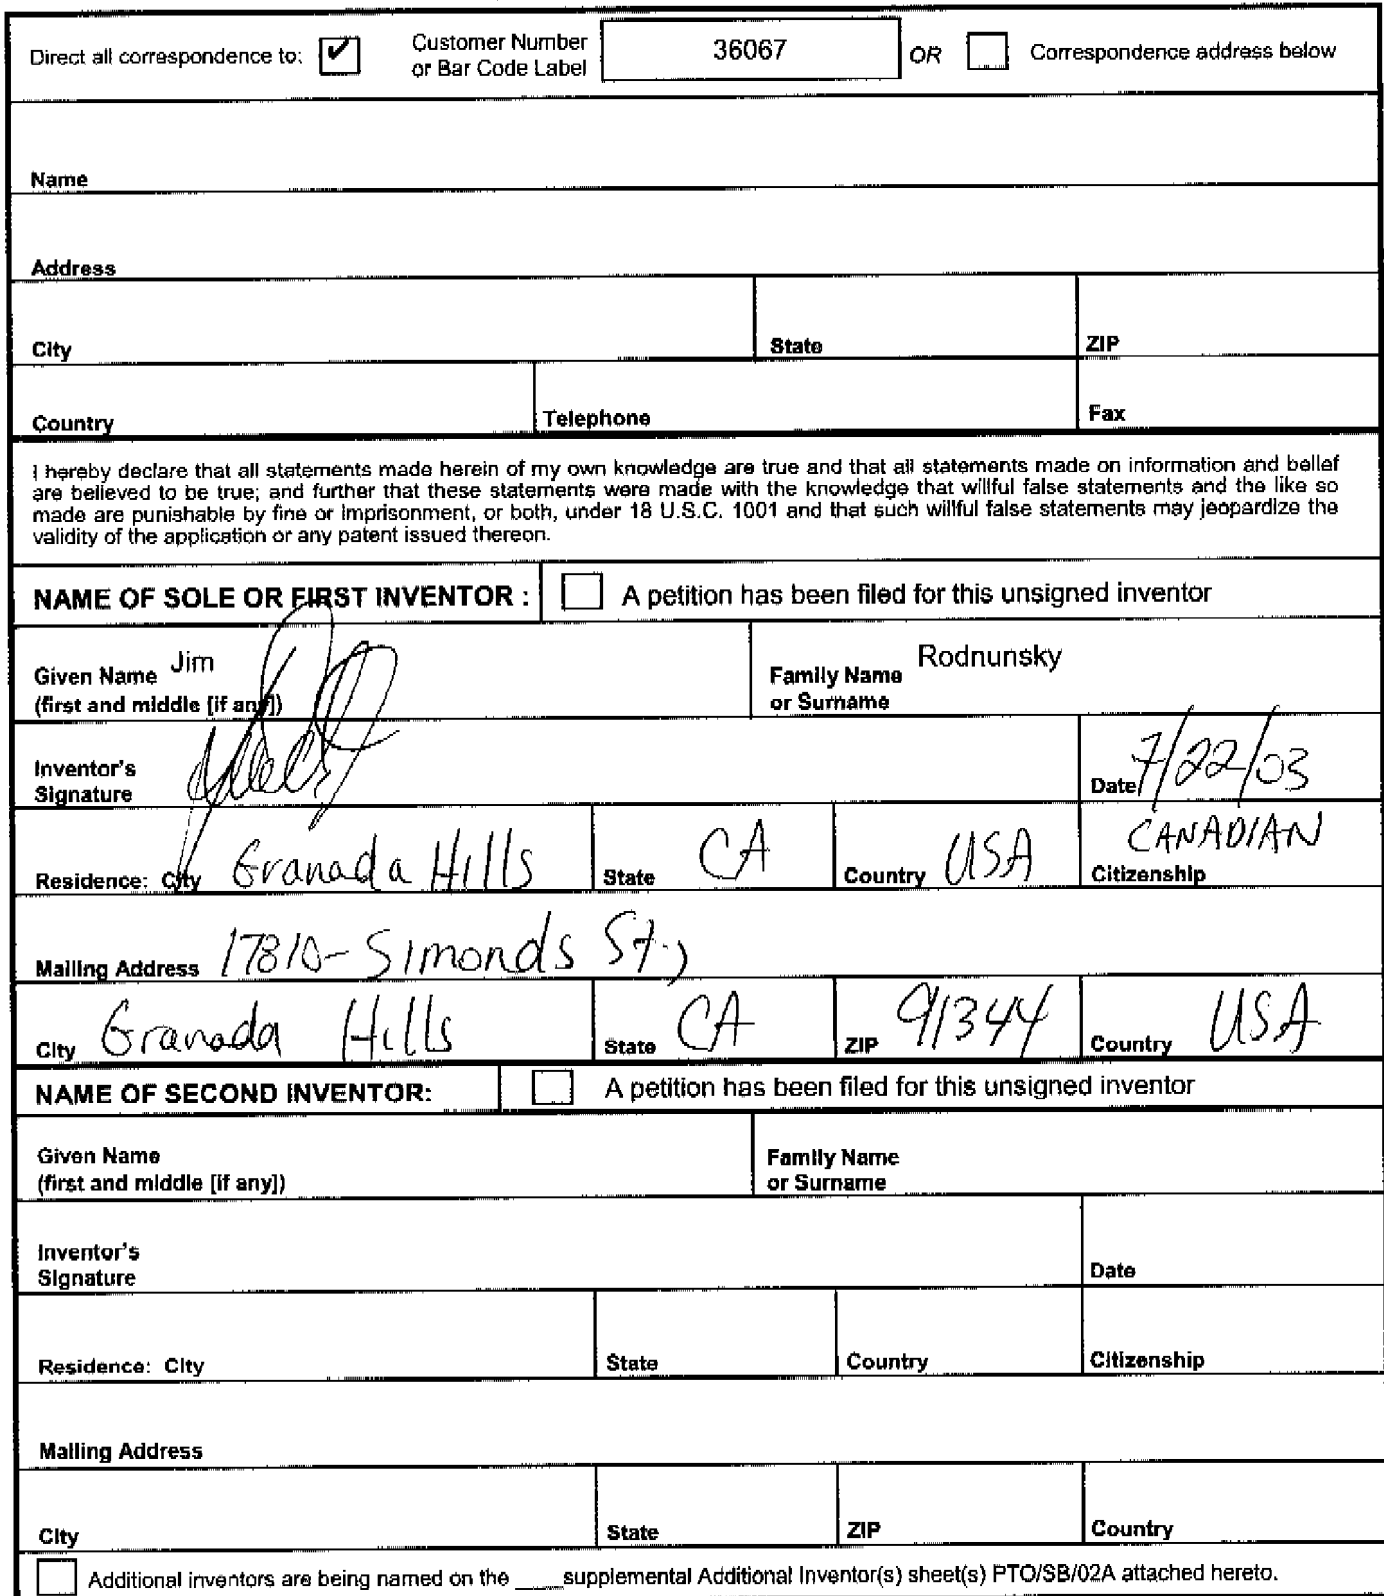 Direct all correspondence to: ✔ Customer Number or Bar Code Label 36067 OR Correspondence address below
Name
Address
City State ZIP
Country Telephone Fax
I hereby declare that all statements made herein of my own knowledge are true and that all statements made on information and belief
are believed to be true; and further that these statements were made with the knowledge that willful false statements and the like so
made are punishable by fine or imprisonment, or both, under 18 U.S.C. 1001 and that such willful false statements may jeopardize the
validity of the application or any patent issued thereon.
NAME OF SOLE OR FIRST INVENTOR : A petition has been filed for this unsigned inventor
Given Name Jim Family Name Rodnunsky
(first and middle [if any]) or Surname
Inventor's
Signature Date 7/22/03
Residence: City Granada Hills State CA Country USA Citizenship CANADIAN
Mailing Address 17810- Simonds St.,
City Granada Hills State CA ZIP 91344 Country USA
NAME OF SECOND INVENTOR: A petition has been filed for this unsigned inventor
Given Name Family Name
(first and middle [if any]) or Surname
Inventor's
Signature Date
Residence: City State Country Citizenship
Mailing Address
City State ZIP Country
Additional inventors are being named on the ____supplemental Additional Inventor(s) sheet(s) PTO/SB/02A attached hereto.